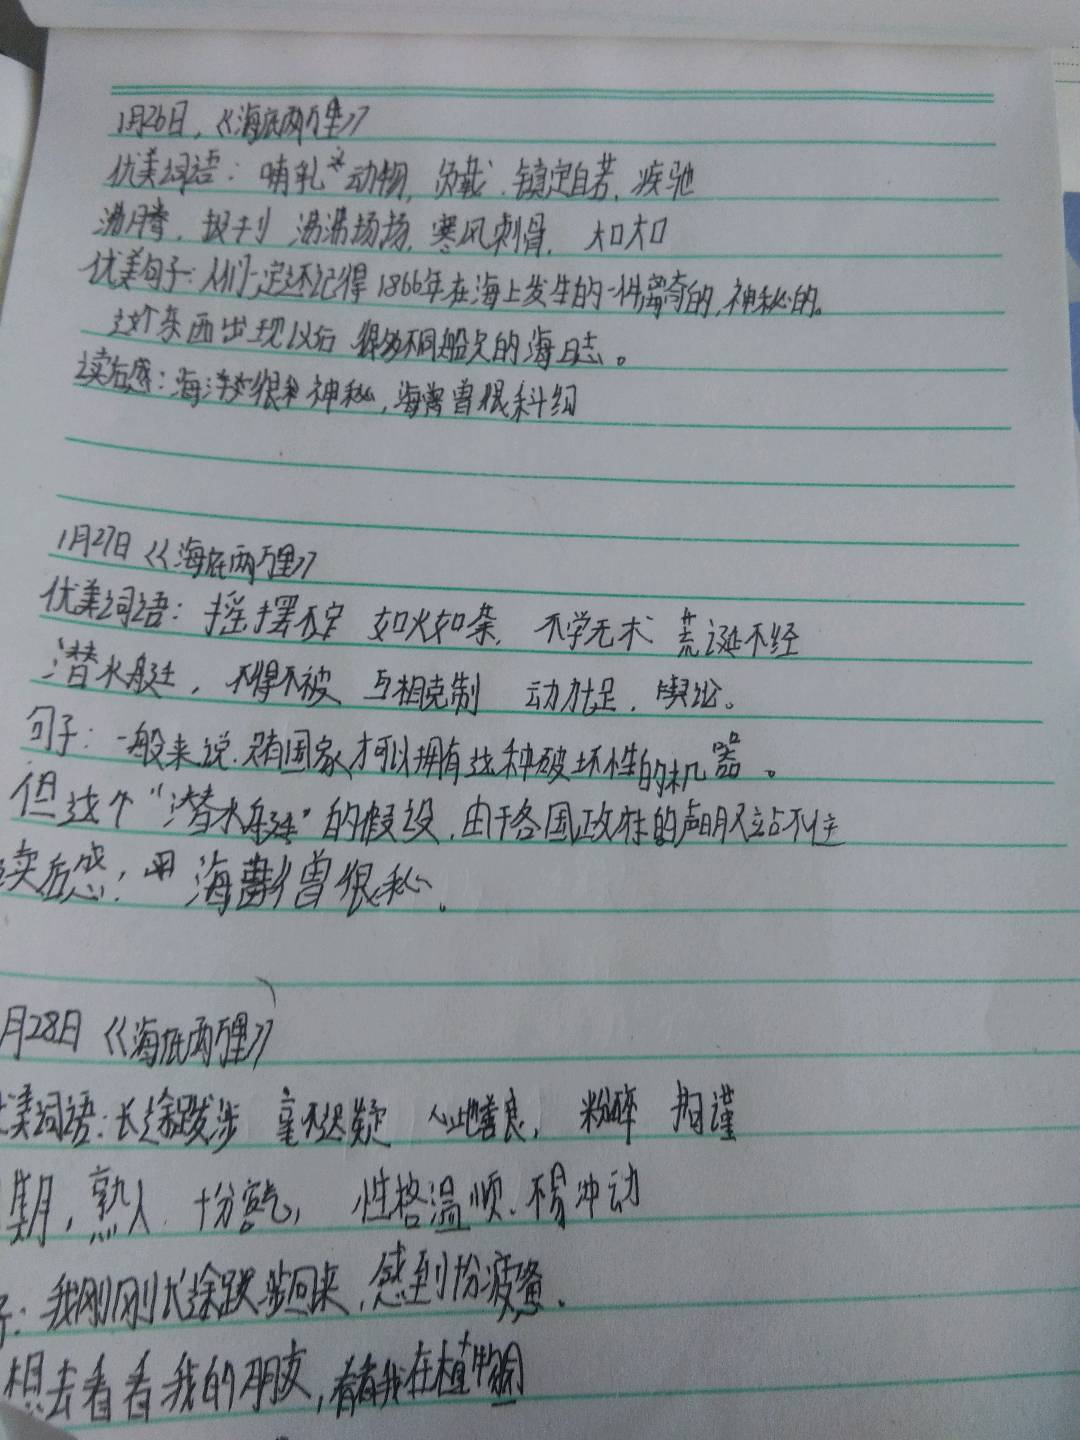 1月26日,《海底两万里》
优美词语：哺乳动物,负载、镇定自若、疾驰
沸腾、报刊 沸沸扬扬,寒风刺骨, 大口大口
优美句子：人们一定还记得1866年在海上发生的一件离奇的,神秘的。
这个东西出现以后 得多不同船只的海日志。
读后感：海洋很神秘,海兽曾很
1月27日《海底两万里》
优美词语：摇摆不定 如火如条, 不学无术 荒诞不经
潜水艇, 不得不被 互相克制 动力十足,舆论。
句子：一般来说,只有国家才可以拥有这种破坏性的机器。
但这个“潜水艇”的假设,由于各国政府的声明又站不住
读后感： 海 曾很
月28日《海底两万里》
美词语：长途跋涉 毫不迟疑 心地善良, 粉碎 拘谨
期,熟人 十分客气, 性格温顺、不易冲动
子：我刚刚长途跋涉回来,感到十分疲惫、
想去看看我的朋友,看看我在植物园